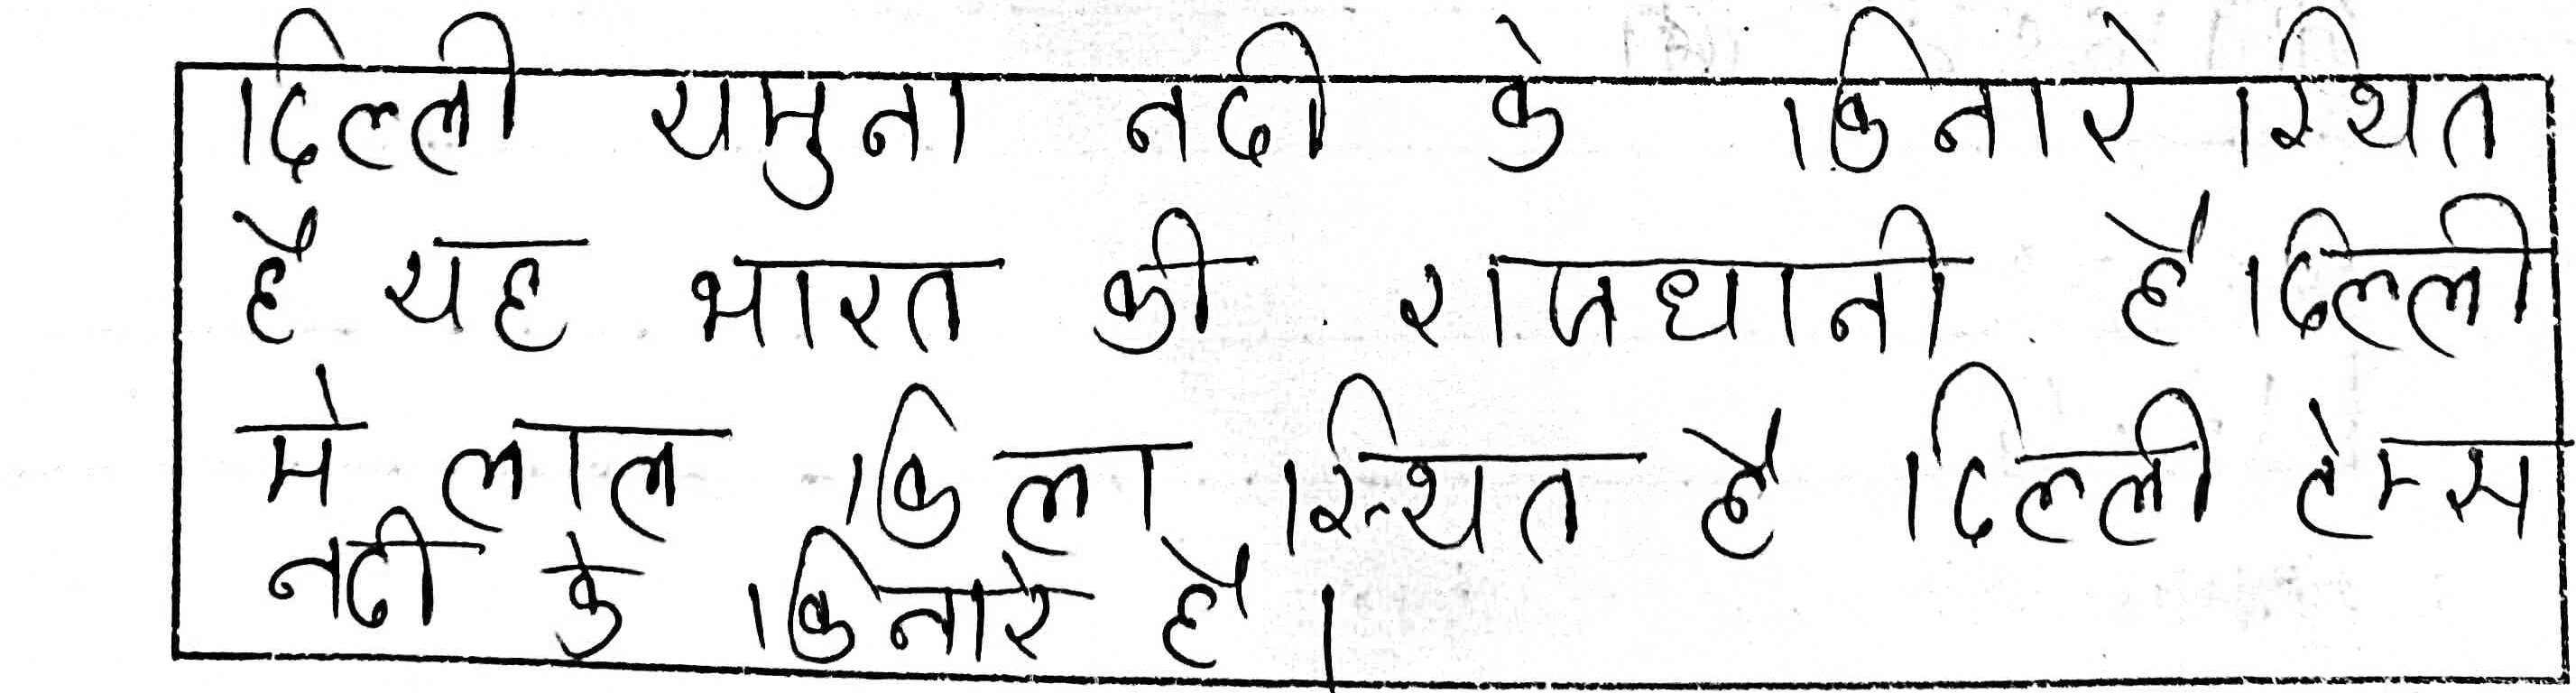 दिल्ली यमुना नदी के किनारे स्थित
है यह भारत की राजधानी है दिल्ली
मे लाल किला स्थित है दिल्ली टेम्स
नदी के किनारे है।